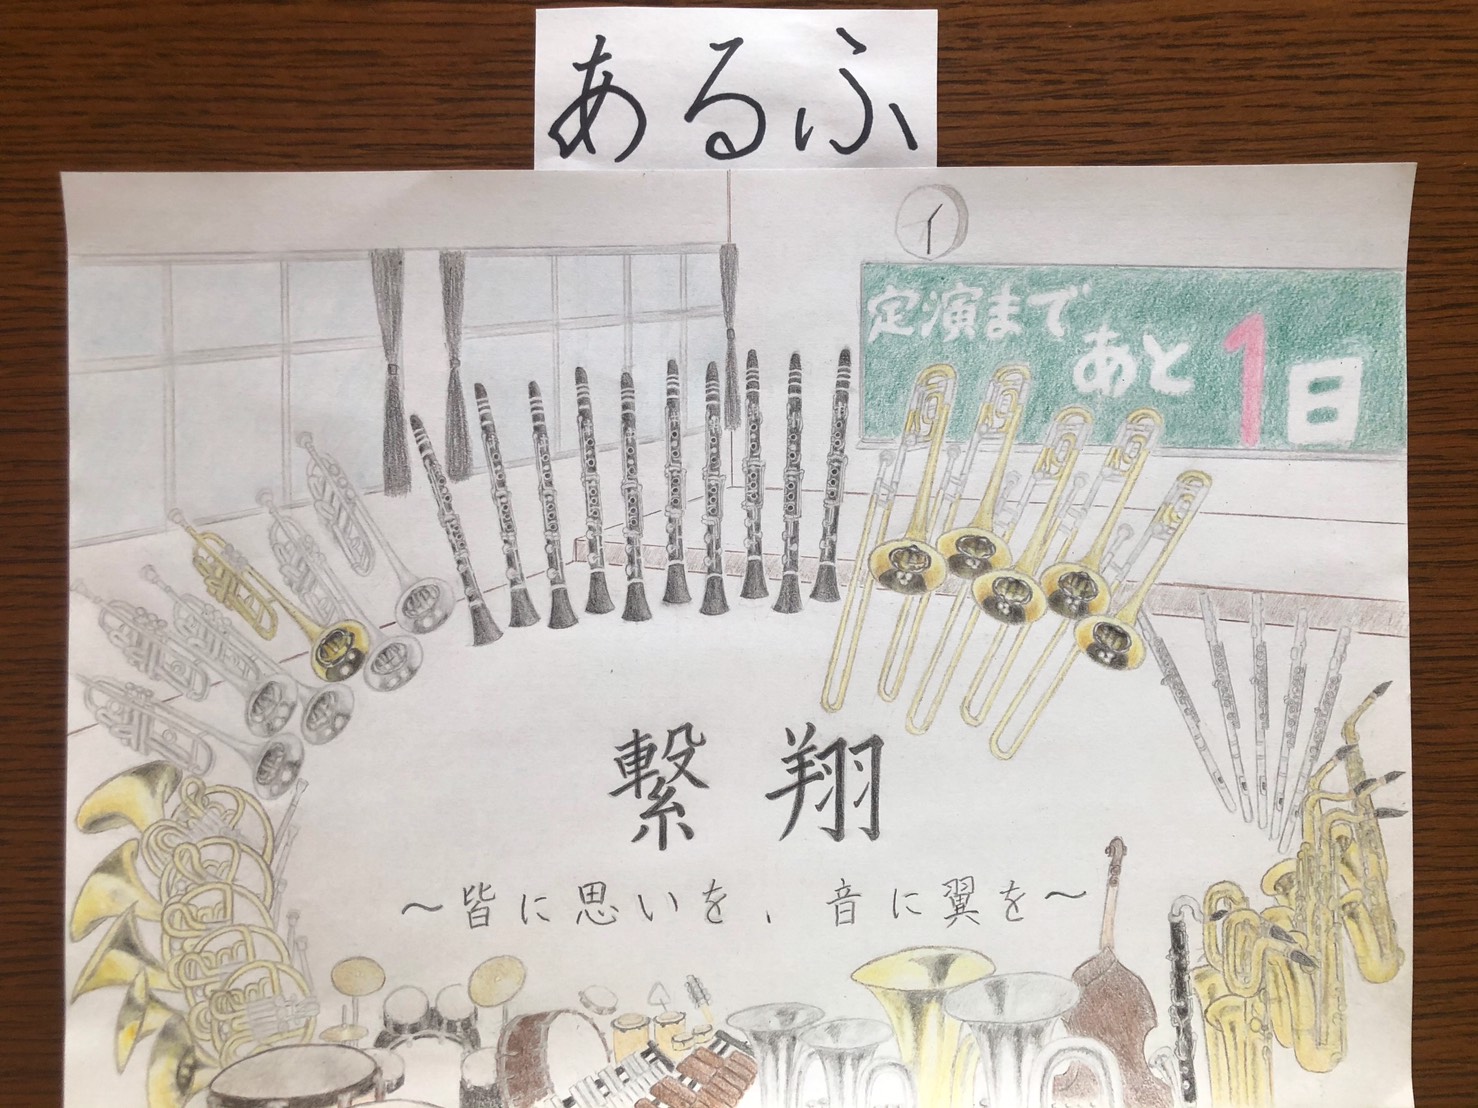 あるふ
定演まで
あと1日
繋翔
～皆に思いを、音に翼を～